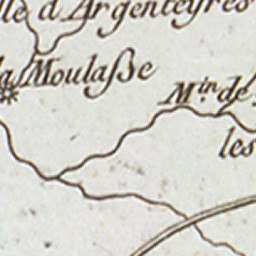 lle d'Argenteyres
la Moulaße
M.in de
les